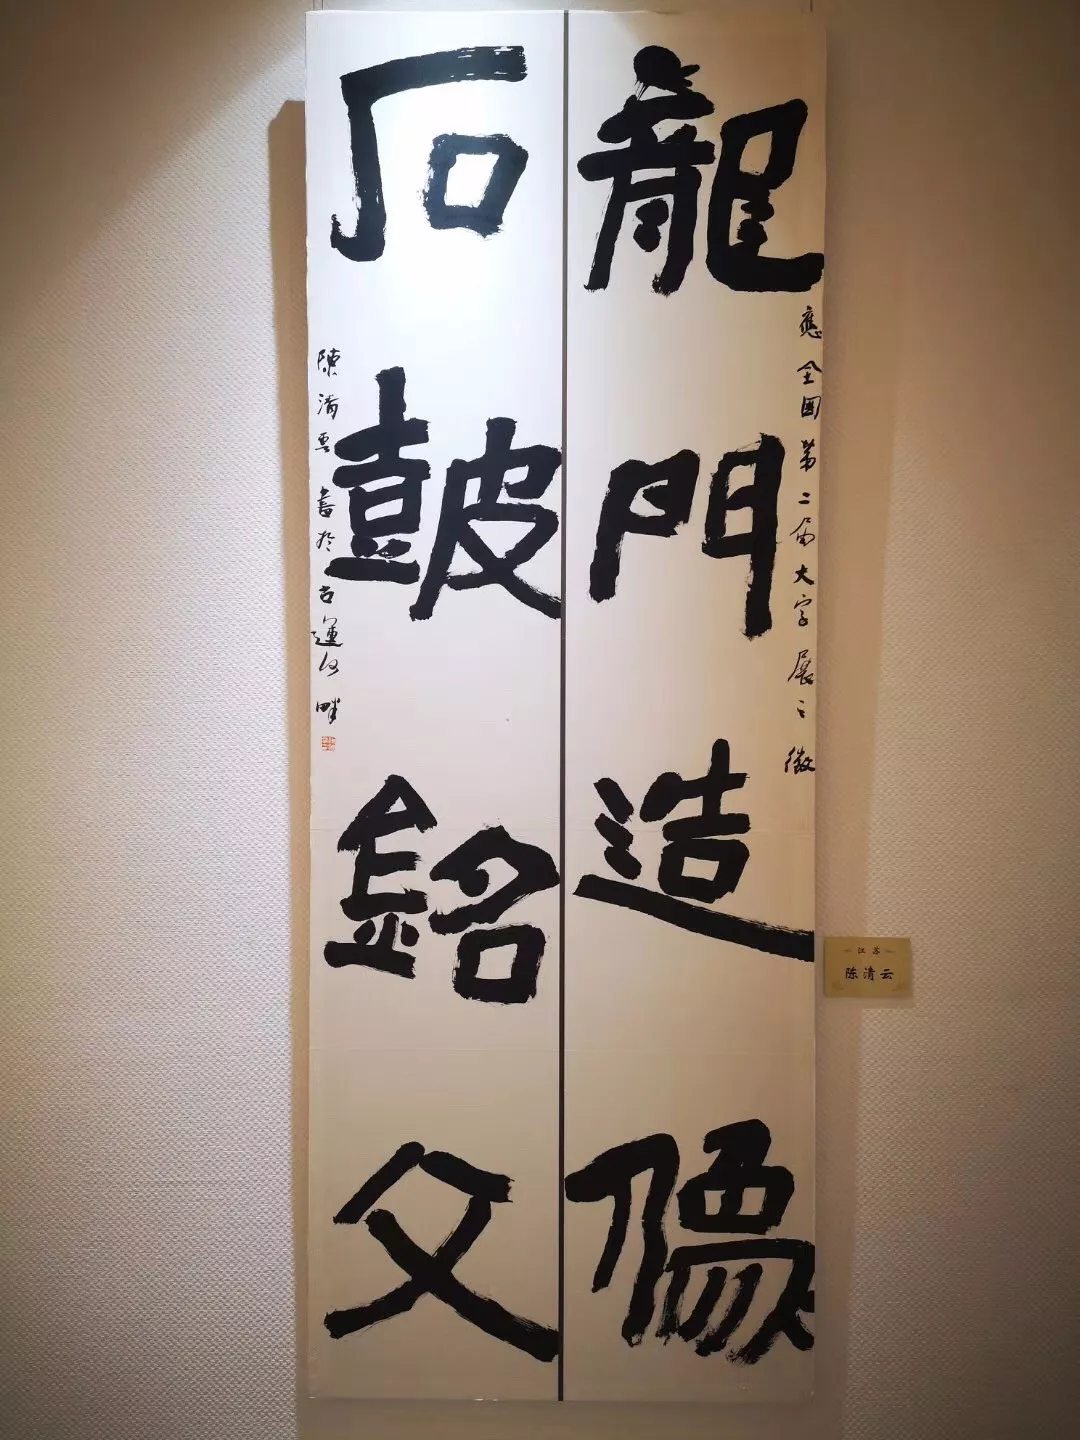 龍門造像
應全國第二届大字展之徵
石皷銘文
陳清雲書於古運河畔
江苏
陈清云